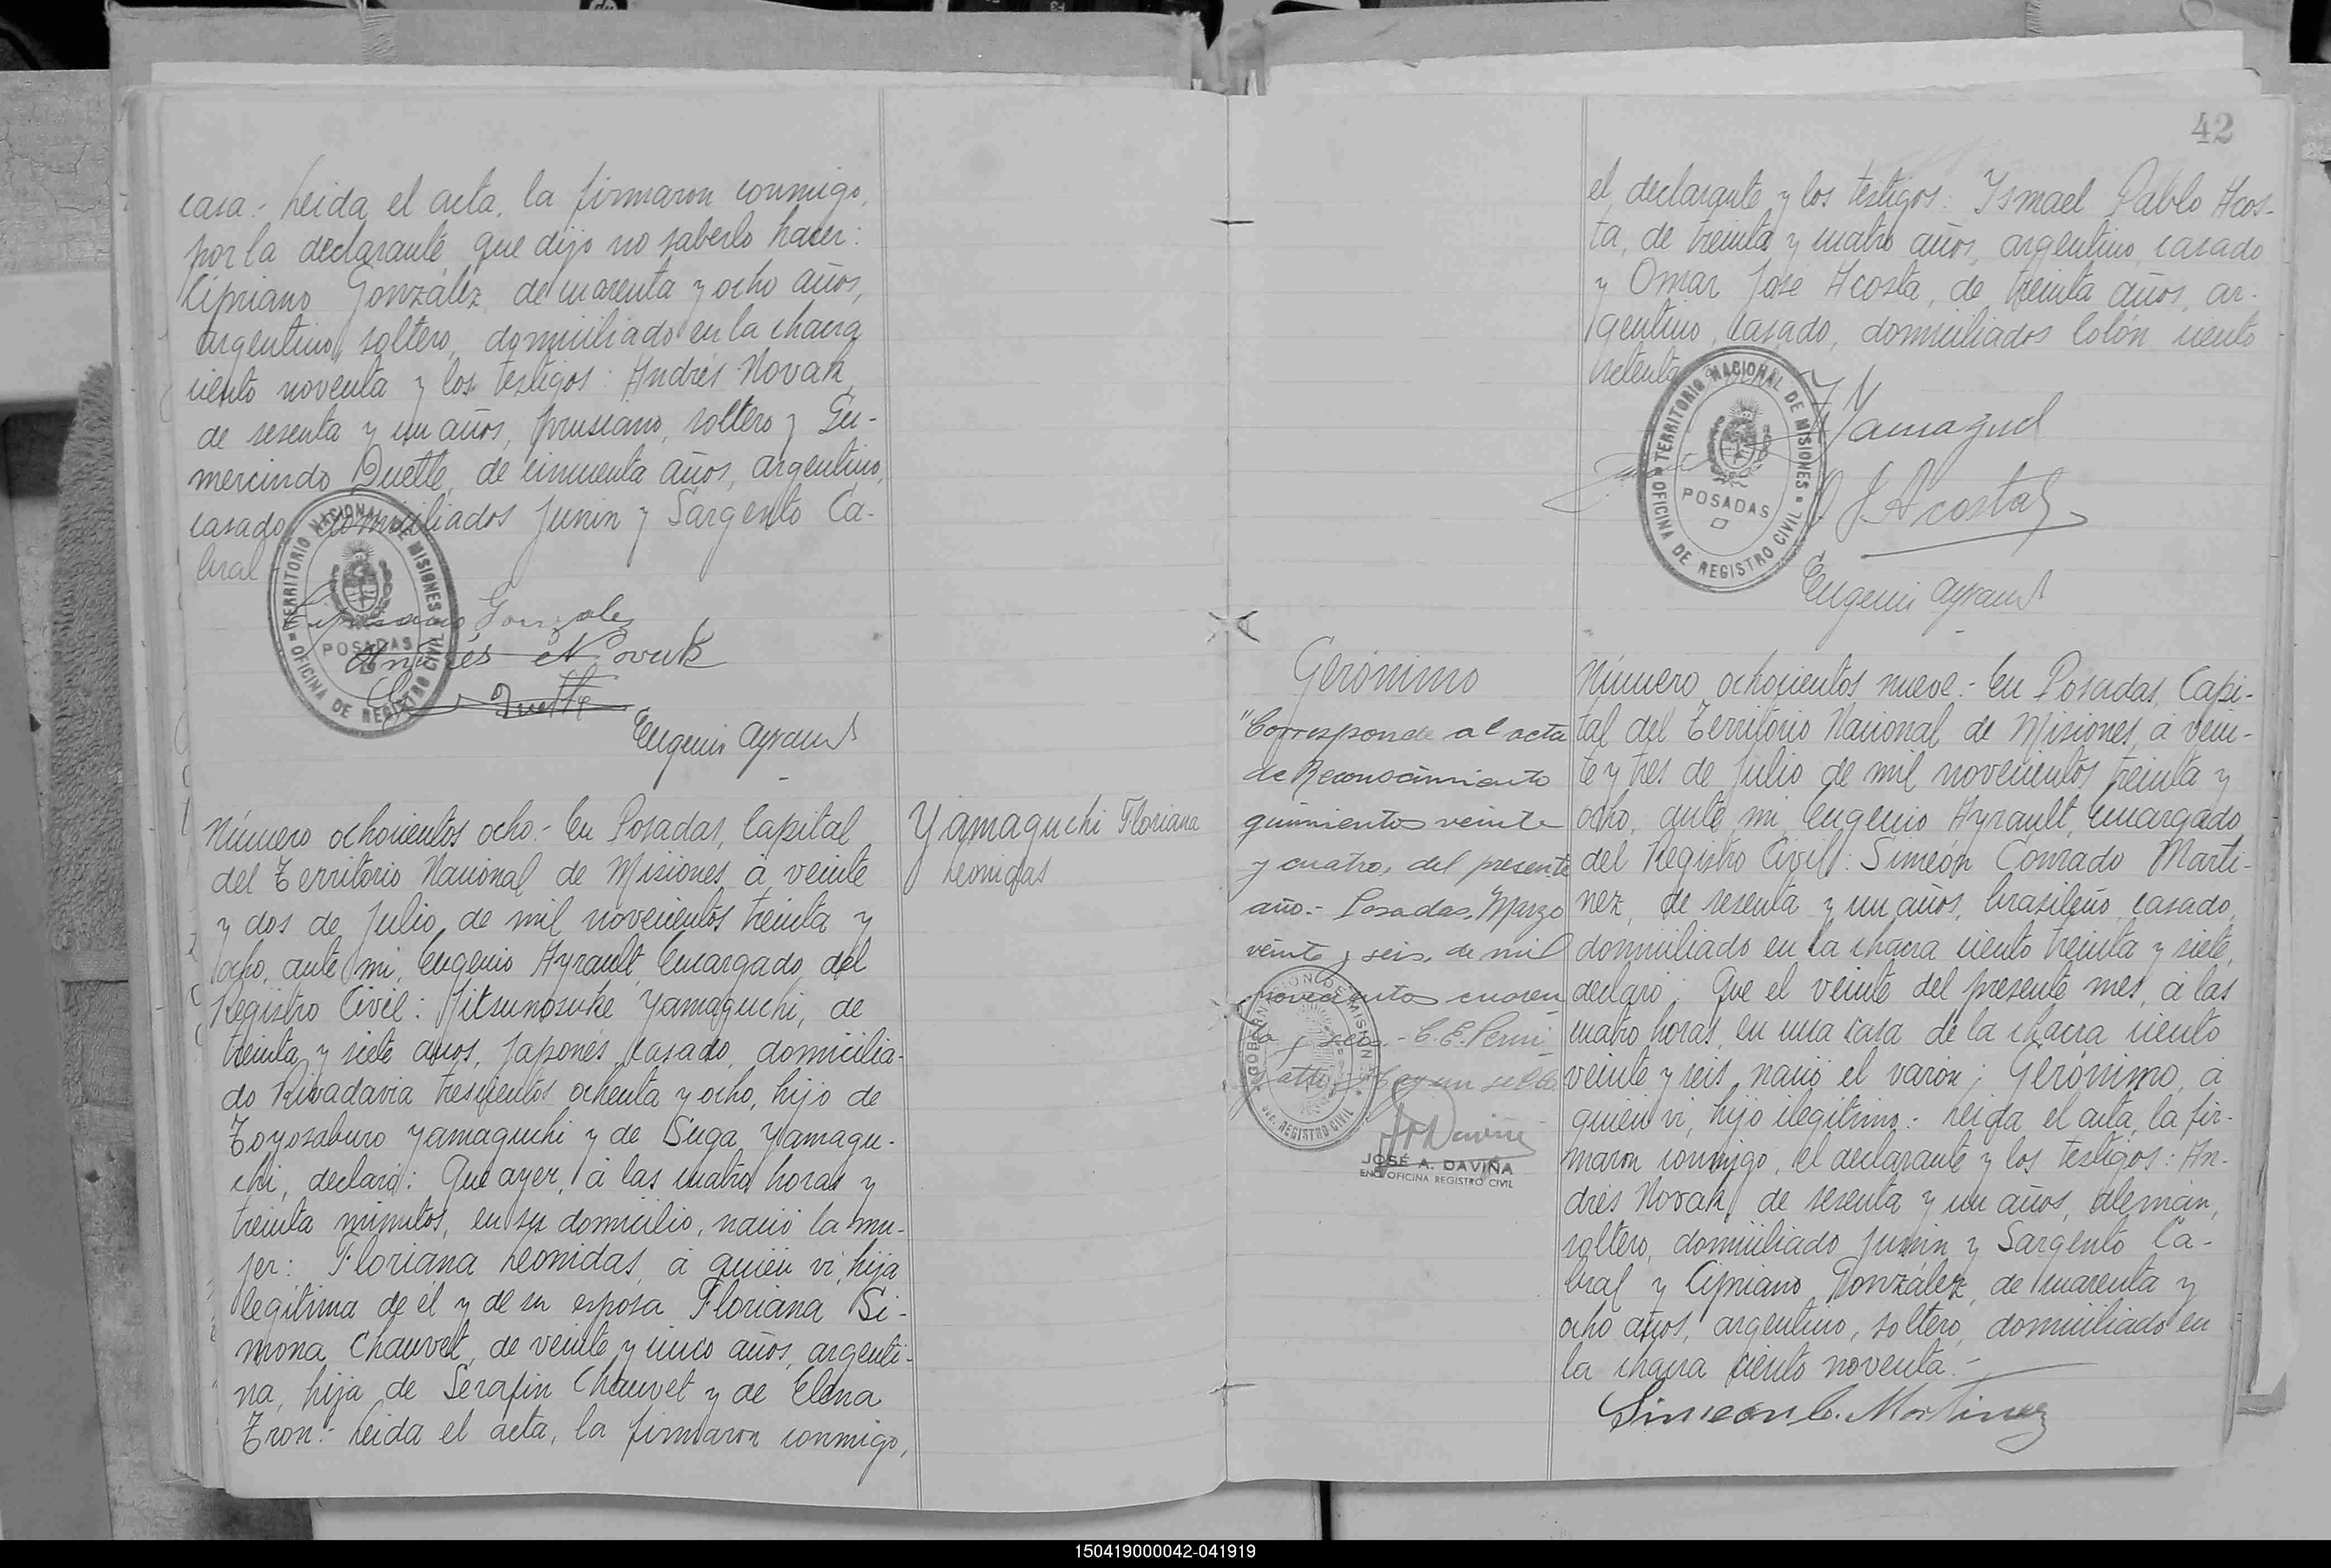 casa.- Leida el acta, la firmaron conmigo,
por la declarante, que dijo no saberlo hacer:
Cipriano González, de cuarenta y ocho años,
argentino, soltero, domiciliado en la chacra
ciento noventa y los testigos: Andrés Novak,
de sesenta y un años, prusiano, soltero y Gu-
mercindo Duette, de cincuenta años, argentino,
casado, domiciliados Junin y Sargento Ca-
bral
TERRITORIO NACIONAL DE MISIONES
POSADAS
OFICINA DE REGISTRO CIVIL
Cipriano Gonzalez
Andrés Novak
Duette
Eugenio Ayrault
Número ochocientos ocho.- En Posadas, Capital
del Territorio Nacional de Misiones, á veinte
y dos de Julio de mil novecientos treinta y
ocho, ante mi, Eugenio Ayrault, Encargado del
Registro Civil: Jitsunosuke Yamaguchi, de
treinta y siete años, japonés, casado, domicilia-
do Rivadavia trescientos ochenta y ocho, hijo de
Toyosaburo Yamaguchi y de Suga Yamagu-
chi, declaró: Que ayer, á las cuatro horas y
treinta minutos, en su domicilio, nació la mu-
jer: Floriana Leonidas, á quien vi, hija
legítima de él y de su esposa Floriana Si-
mona Chauvet, de veinte y cinco años, argenti-
na, hija de Serafin Chauvet y de Elena
Tron.- Leida el acta, la firmaron conmigo,
Yamaguchi Floriana
Leonidas
42
el declarante y los testigos: Ismael Pablo Acos-
ta, de treinta y cuatro años, argentino, casado
y Omar José Acosta, de treinta años, ar-
gentino, casado, domiciliados Colón ciento
setenta
TERRITORIO NACIONAL DE MISIONES
POSADAS
OFICINA DE REGISTRO CIVIL
J. Acosta
Eugenio Ayrault
Gerónimo
"Corresponde al acta
de Reconocimiento
quinientos veinte
y cuatro, del presente
año.- Posadas, Marzo
veinte y seis, de mil
novecientos cuaren
ta y seis.- C. E. Perni
GOBERNACION DE MISIONES
REGISTRO CIVIL
JOSÉ A. DAVIÑA
ENC. OFICINA REGISTRO CIVIL
Número ochocientos nueve.- En Posadas, Capi-
tal del Territorio Nacional de Misiones, á vein-
te y tres de Julio de mil novecientos treinta y
ocho, ante mi, Eugenio Ayrault, Encargado
del Registro Civil: Simeón Conrado Marti-
nez, de sesenta y un años, brasileño, casado,
domiciliado en la chacra ciento treinta y siete,
declaró: Que el veinte del presente mes, á las
cuatro horas, en una casa de la chacra ciento
veinte y seis, nació el varon; Gerónimo, á
quien vi, hijo ilegítimo.- Leida el acta, la fir-
maron conmigo, el declarante y los testigos: An-
drés Novak, de sesenta y un años, alemán,
soltero, domiciliado Junin y Sargento Ca-
bral y Cipriano González, de cuarenta y
ocho años, argentino, soltero, domiciliado en
la chacra ciento noventa.-
Simeon C. Martinez
150419000042-041919